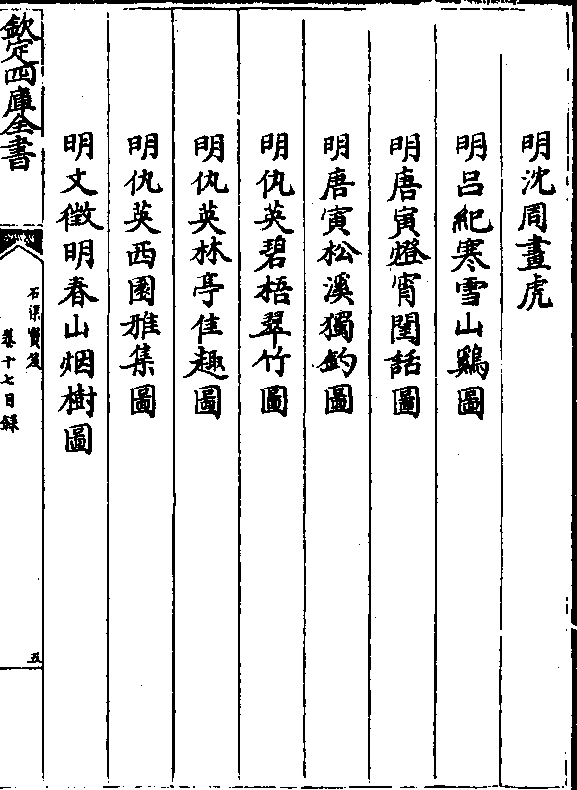 明沈周畫虎
明呂紀寒雪山鷄圖
明唐寅燈宵閨話圖
明唐寅松溪獨釣圖
明仇英碧梧翠竹圖
明仇英林亭佳趣圖
明仇英西園雅集圖
明文徵明春山烟樹圖
欽定四庫全書
石渠寶笈
卷十七目録
五